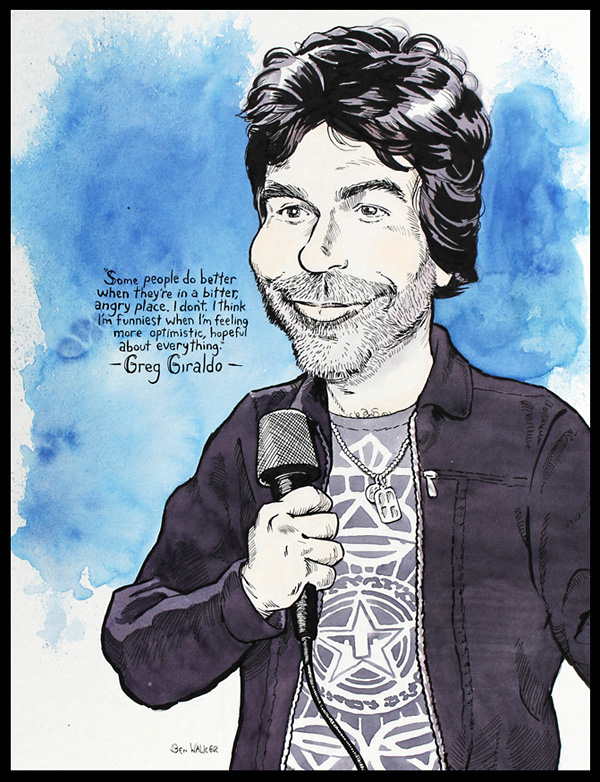 "Some people do better
when they're in a bitter,
angry place. I don't. I think
I'm funniest when I'm feeling
more optimistic, hopeful
about everything."
— Greg Giraldo —
Ben Walker